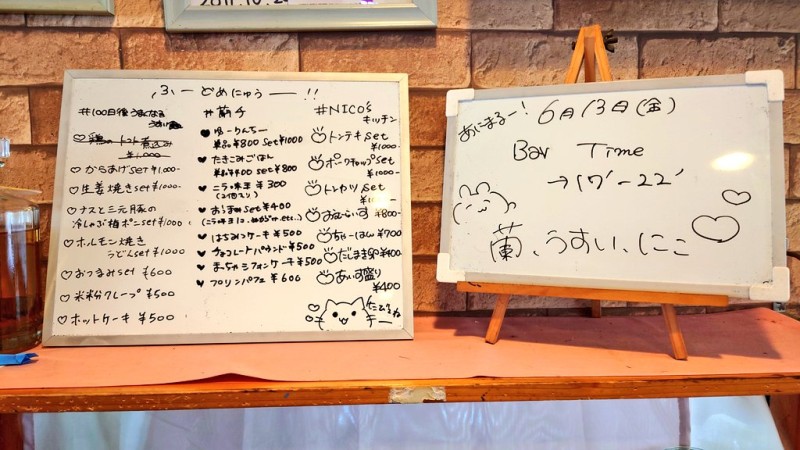 2011.10.2
ふーどめにゅうー!!
#100日後うまくなる
うすい
鶏のトマト煮込み
¥1,000-
からあげset ¥1,000-
生姜焼きset ¥1000-
ナスと三元豚の
冷しゃぶ梅ポンset ¥1000
ホルモン焼き
うどんset ¥1000
おつまみset ¥600
米粉クレープ ¥500
ホットケーキ ¥500
#蘭チ
ゆーりんちー
単品¥800 set¥1000
たきこみごはん
単品¥400 set ¥800
ニラ味玉 ¥300
(2個入り)
おつまみset ¥400
はちみつケーキ ¥500
チョコレートパウンド ¥500
まっちゃシフォンケーキ ¥500
プリンパフェ ¥600
#NICO's
キッチン
トンテキset
¥1000-
ポークチャップset
¥1000-
トンカツset
おむらいす ¥800-
ちゃーはん ¥700
だしまき ¥400-
あいす盛り
¥400
あにまるー!
6月13日(金)
Bar Time
→17'-22'
蘭、うすい、にこ